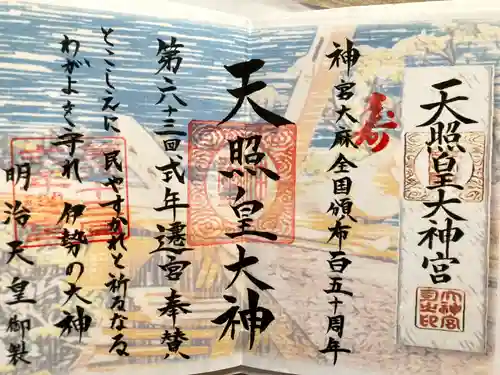 天照皇大神宮
神宮大麻全国頒布百五十周年
寿
天照皇大神
第六十三回式年遷宮奉賛
とこしへに 民やすかれと祈るなる
わがよを守れ 伊勢の大神
明治天皇御製